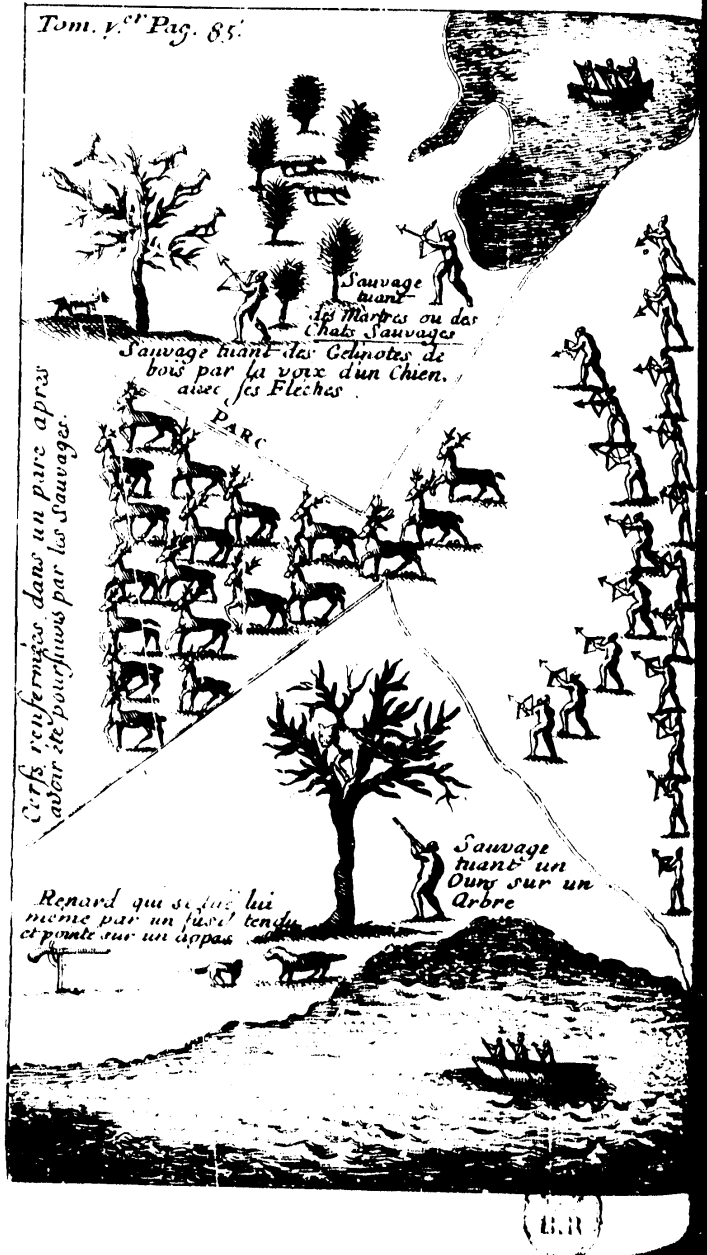 Tom. 1.er Pag. 85.
Sauvage
tuant
des Martres ou des
Chats Sauvages
Sauvage tuant des Gelinotes de
bois par la voix d'un Chien,
avec ses Fléches
PARC
Cerfs renfermées dans un parc aprés
avoir été poursuivis par les Sauvages.
Sauvage
tuant un
Ours sur un
Arbre
Renard qui se tuë lui
méme par un fusil tendu
et pointé sur un appas
B.R